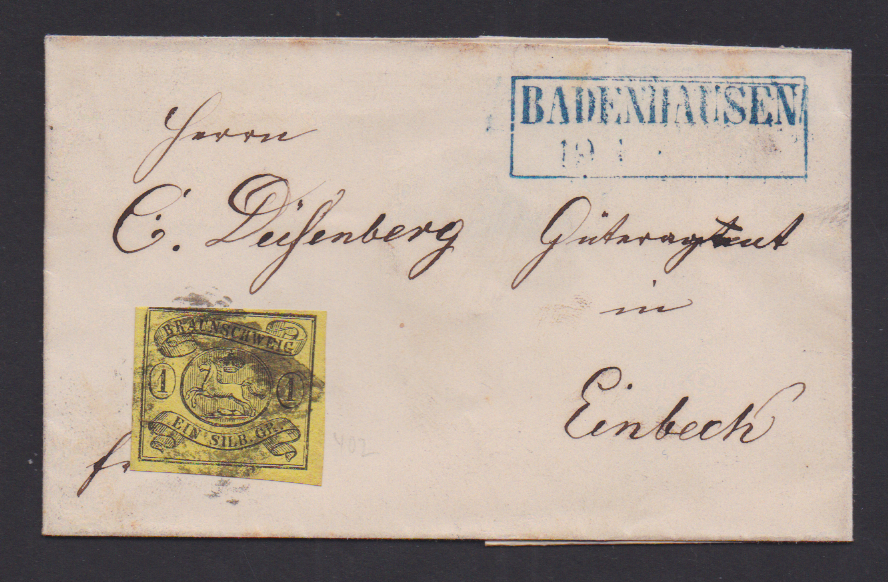 BADENHAUSEN
Herrn
C. Deissenberg Güteragent
in
Einbeck
BRAUNSCHWEIG
1 1
EIN SILB. GR.
fr
402